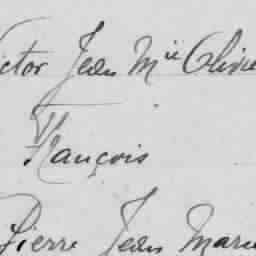 ictor Jean Mie Olivie
François
Pierre Jean Marie